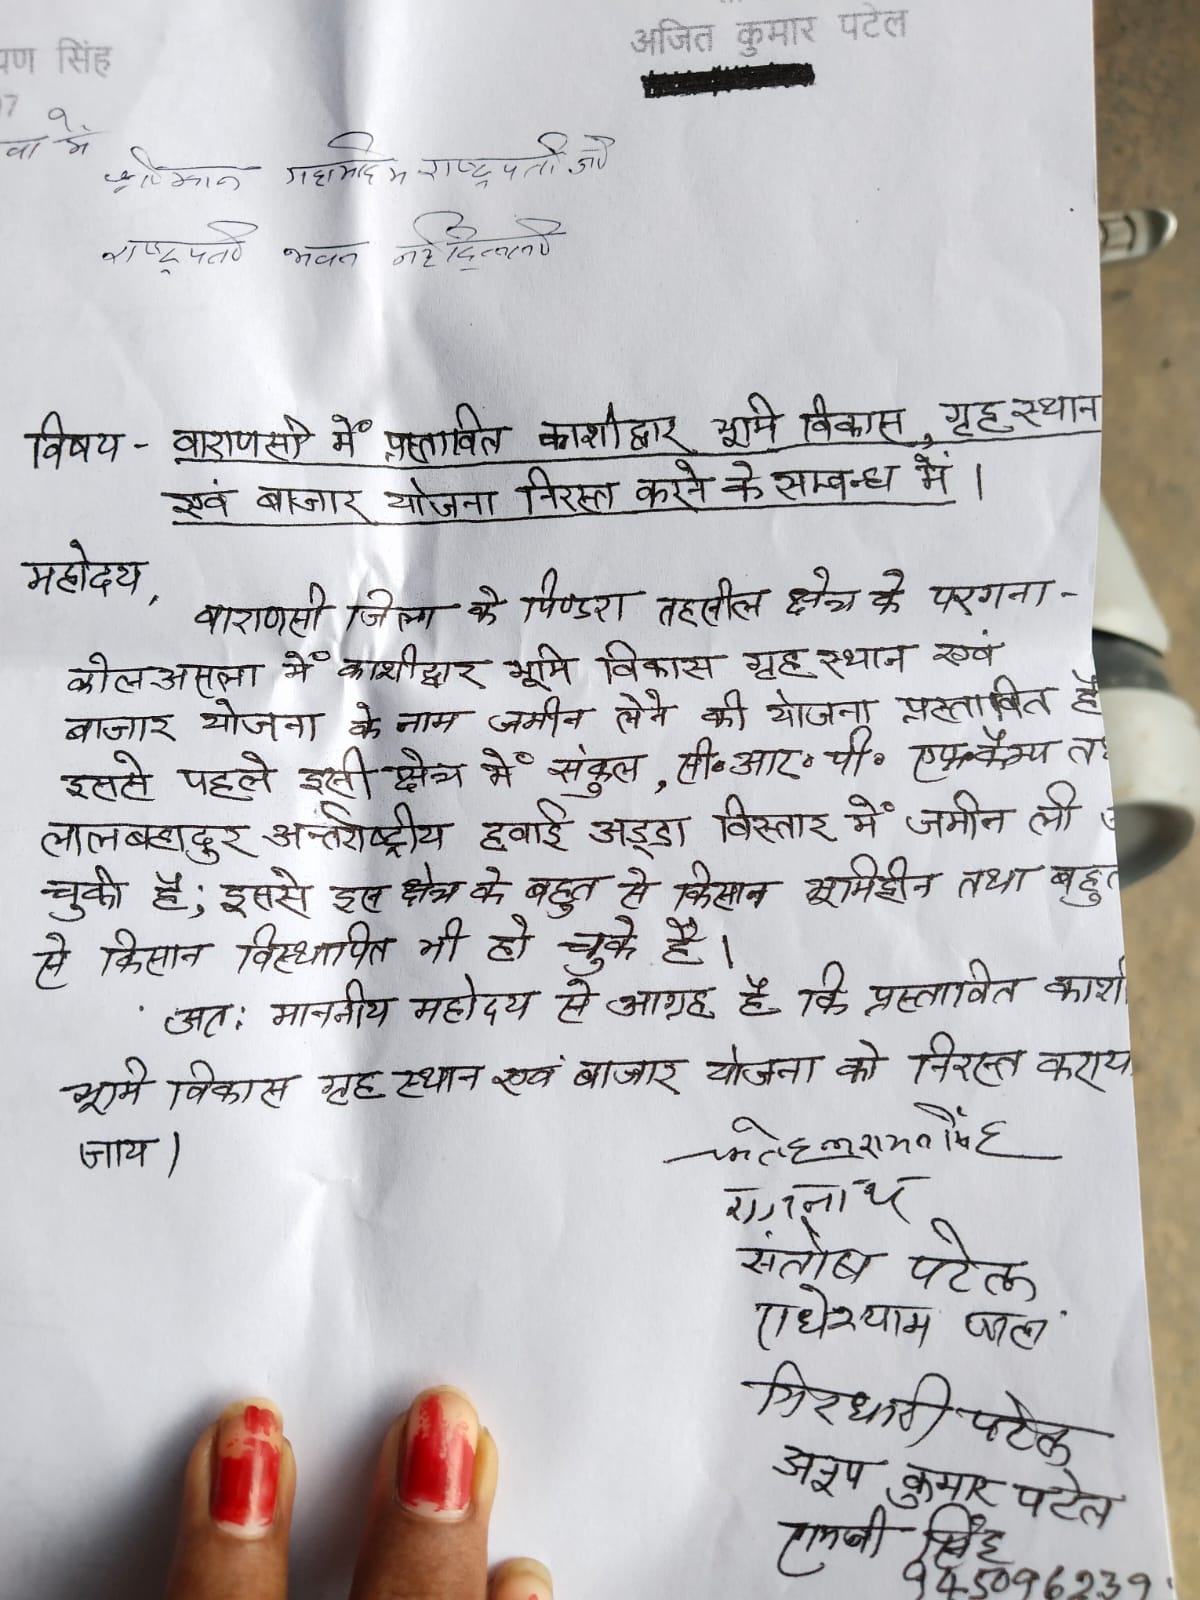 पण सिंह
अजित कुमार पटेल
07
वा में
श्रीमान महामहिम राष्ट्रपती जी
राष्ट्रपती भवन नई दिल्ली
विषय - वाराणसी में प्रस्तावित काशीद्वार भूमि विकास, गृहस्थान
एवं बाजार योजना निरस्त करने के सम्बन्ध में।
महोदय,
वाराणसी जिला के पिण्डरा तहसील क्षेत्र के परगना -
कोलअसला में काशीद्वार भूमि विकास गृहस्थान एवं
बाजार योजना के नाम जमीन लेने की योजना प्रस्तावित है
इससे पहले इसी क्षेत्र में संकुल, सी॰आर॰पी॰ एफ कैम्प
लालबहादुर अर्न्तराष्ट्रीय हवाई अड्डा विस्तार में जमीन ली
चुकी है; इससे इस क्षेत्र के बहुत से किसान भूमिहीन तथा बहुत
से किसान विस्थापित भी हो चुके है।
अत: माननीय महोदय से आग्रह है कि प्रस्तावित काशी
भूमि विकास गृहस्थान एवं बाजार योजना को निरस्त कराया
जाय।
सिंह
संतोष पटेल
राधेश्याम
गिरधारी पटेल
अनूप कुमार पटेल
रामजी सिंह
945096239